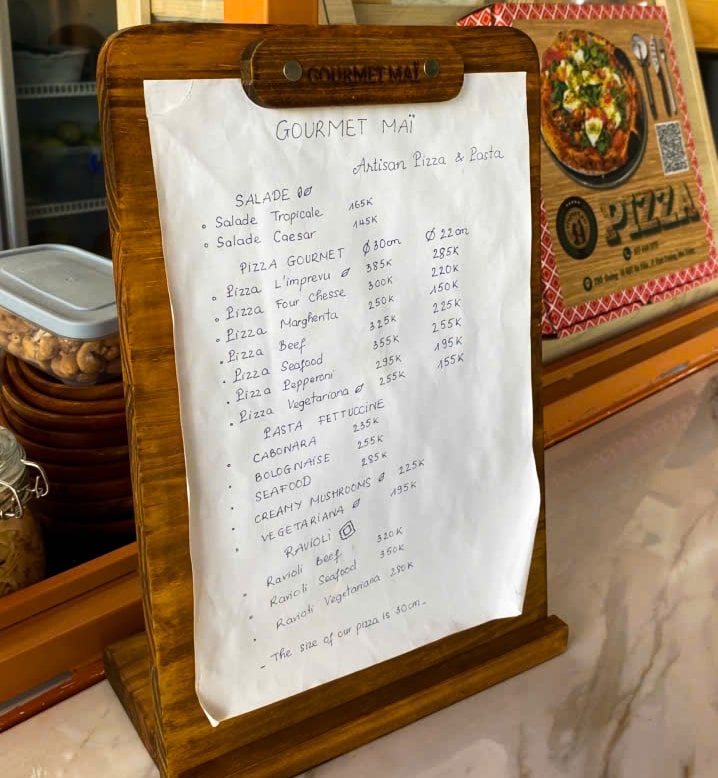 GOURMET MAÏ
GOURMET MAÏ
Artisan Pizza & Pasta
SALADE
Salade Tropicale 165K
Salade Caesar 145K
PIZZA GOURMET Ø 30cm Ø 22cm
Pizza L'imprevu 385K 285K
Pizza Four Chesse 300K 220K
Pizza Margherita 250K 150K
Pizza Beef 325K 225K
Pizza Seafood 355K 255K
Pizza Pepperoni 295K 195K
Pizza Vegetariana 255K 155K
PASTA FETTUCCINE
CABONARA 235K
BOLOGNAISE 255K
SEAFOOD 285K
CREAMY MUSHROOMS 225K
VEGETARIANA 195K
RAVIOLI
Ravioli Beef 320K
Ravioli Seafood 350K
Ravioli Vegetariana 280K
- The size of our pizza is 30cm.
PIZZA